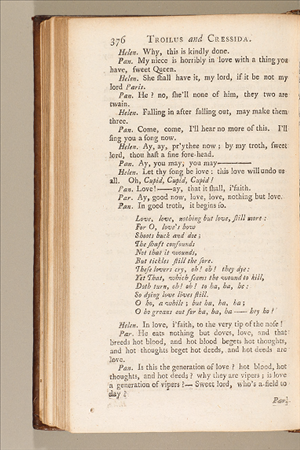 376 TROILUS and CRESSIDA.
Helen. Why, this is kindly done.
Pan. My niece is horribly in love with a thing you
have, ſweet Queen.
Helen. She ſhall have it, my lord, if it be not my
lord Paris.
Pan. He? no, ſhe'll none of him, they two are
twain.
Helen. Falling in after falling out, may make them
three.
Pan. Come, come, I'll hear no more of this. I'll
ſing you a ſong now.
Helen. Ay, ay, pr'ythee now; by my troth, ſweet
lord, thou haſt a fine fore-head.
Pan. Ay, you may; you may———
Helen. Let thy ſong be love: this love will undo us
all. Oh, Cupid, Cupid, Cupid!
Pan. Love!——ay, that it ſhall, i'faith.
Par. Ay, good now, love, love, nothing but love.
Pan. In good troth, it begins ſo.
Love, love, nothing but love, ſtill more:
For O, love's bow
Shoots buck and doe;
The ſhaft confounds
Not that it wounds,
But tickles ſtill the ſore.
Theſe lovers cry, oh! oh! they dye:
Yet That, which ſeems the wound to kill,
Doth turn, oh! oh! to ha, ha, he:
So dying love lives ſtill.
O ho, a while; but ha, ha, ha;
O ho groans out for ha, ha, ha——hey ho!
Helen. In love, i'faith, to the very tip of the noſe!
Par. He eats nothing but doves, love, and that
breeds hot blood, and hot blood begets hot thoughts,
and hot thoughts beget hot deeds, and hot deeds are
love.
Pan. Is this the generation of love? hot blood, hot
thoughts, and hot deeds? why they are vipers; is love
a generation of vipers?—Sweet lord, who's a-field to
day?
Par.